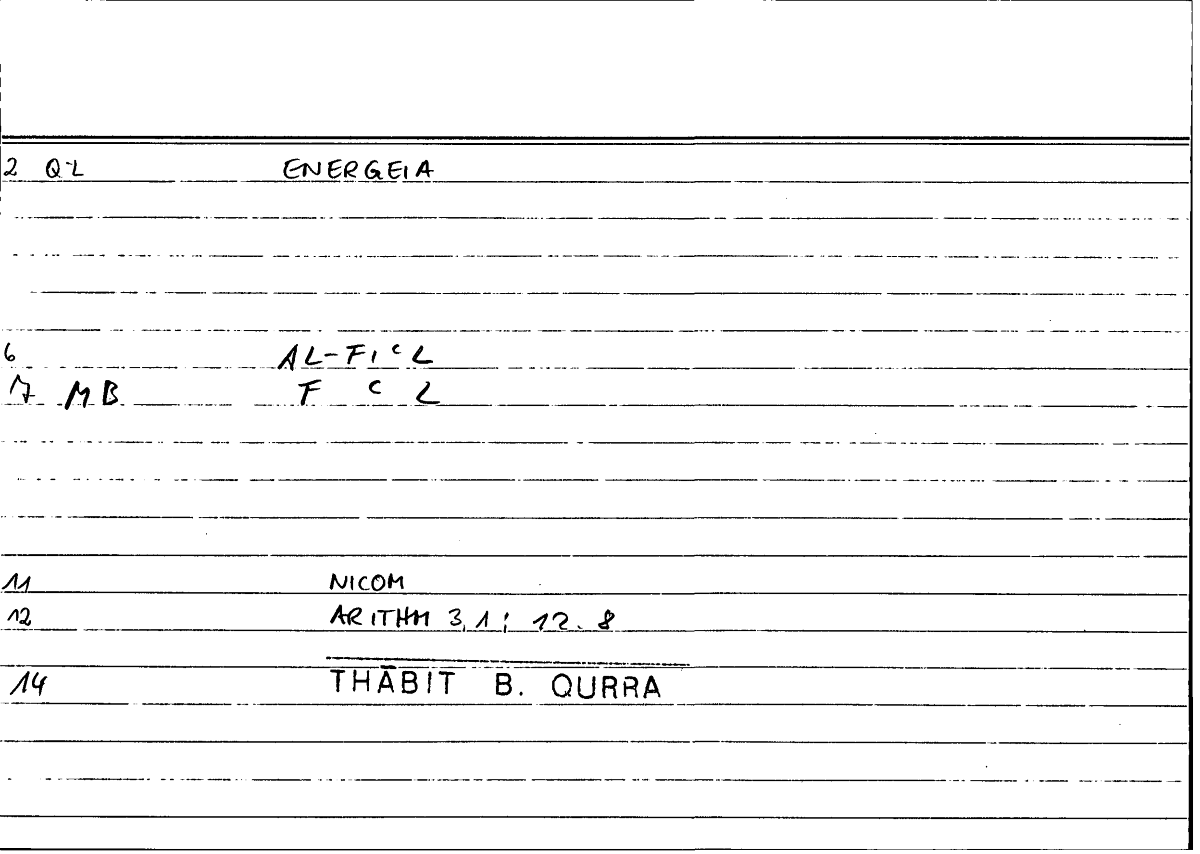 2 QL ENERGEIA
6 AL-FIʿL
17 MB F ʿ L
11 NICOM
12 ARITHM 3,1; 12.8
14 THĀBIT B. QURRA